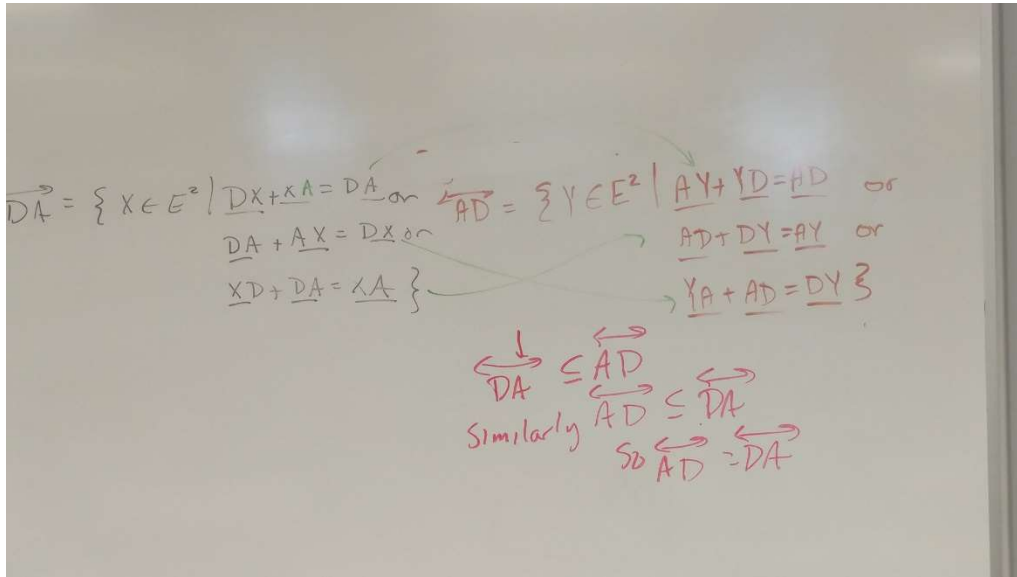 DA = { X ∈ E² | DX + XA = DA or
DA + AX = DX or
XD + DA = XA }
AD = { Y ∈ E² | AY + YD = AD or
AD + DY = AY or
YA + AD = DY }
DA ⊆ AD
Similarly AD ⊆ DA
So AD = DA